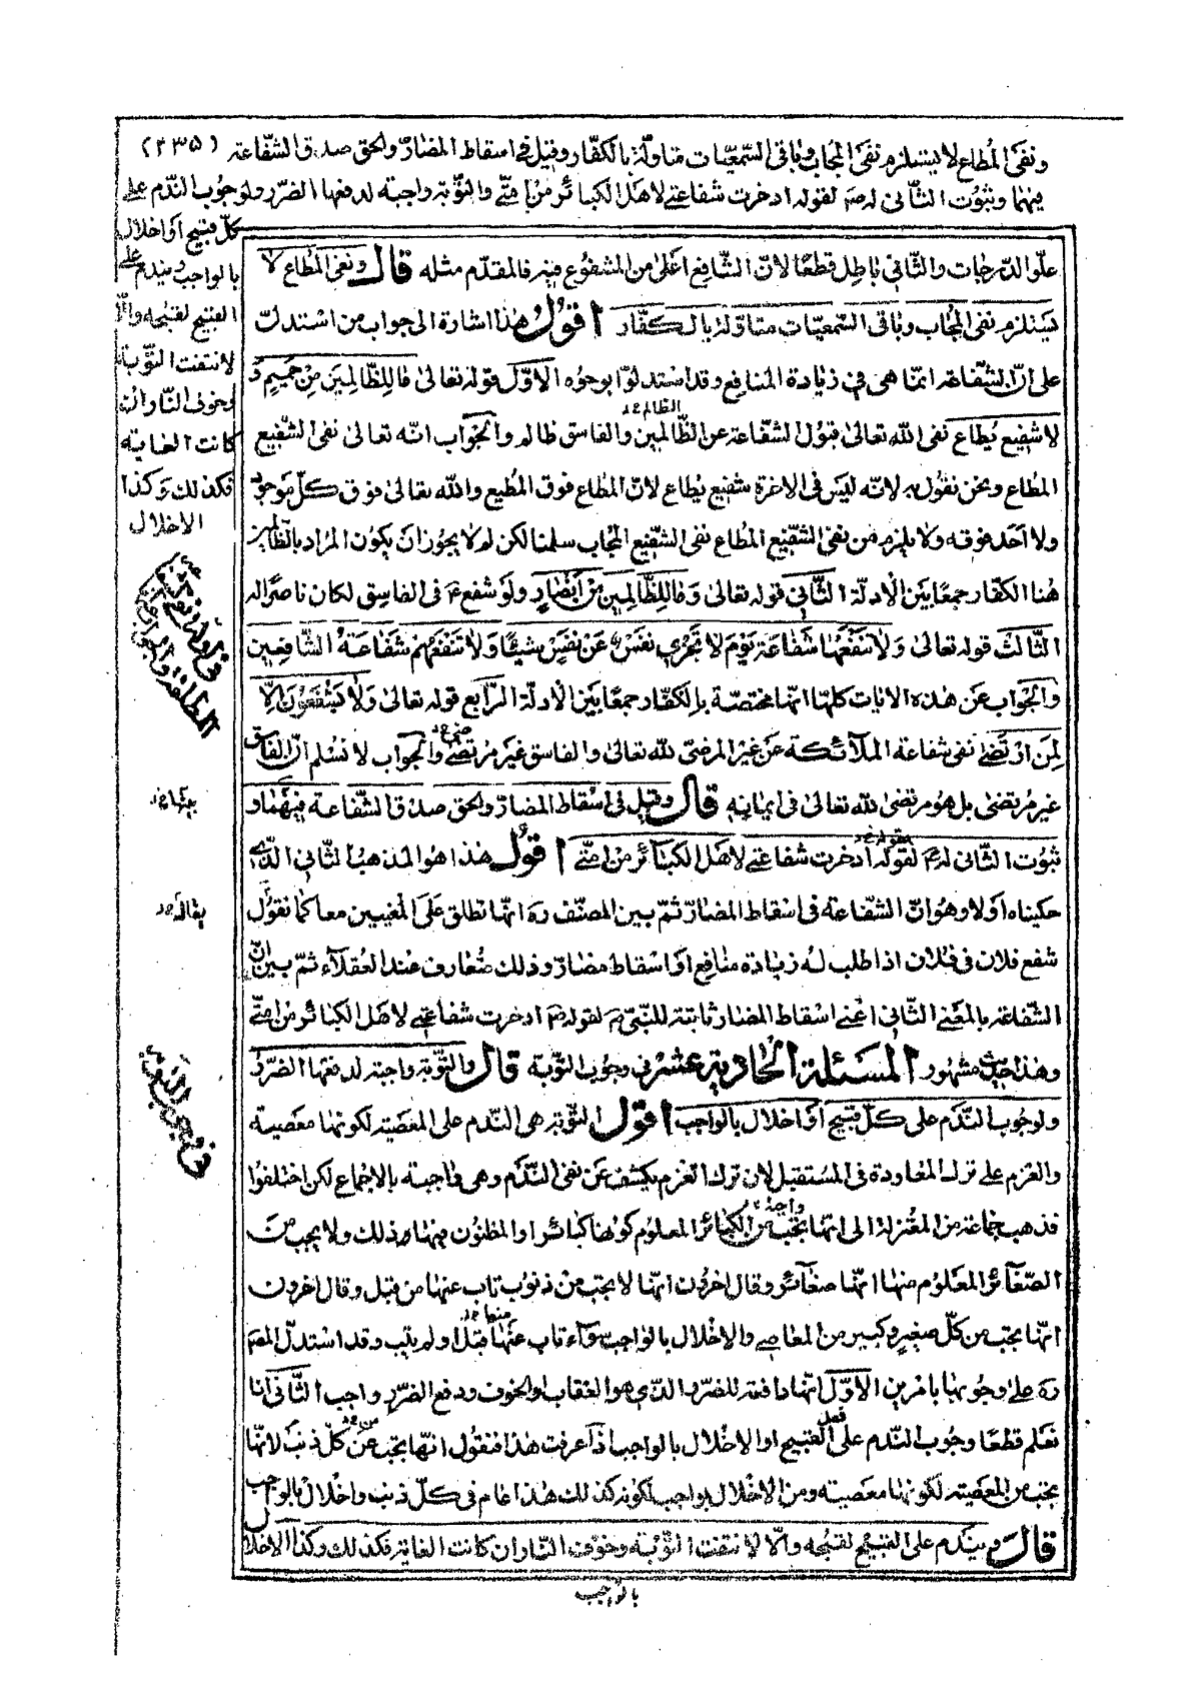 ونفى المطاع لا يستلزم نفى المجاب وباقى السمعيات متاولة بالكفار وقيل فى اسقاط المضار والحق صدق الشفاعة (٢٣۵)
فيهما وثبوت الثانى له ص لقوله ادخرت شفاعتى لاهل الكبائر من امتى والتوبة واجبة لدفعها الضرر ولوجوب الندم على
كل قبيح او اخلال
بالواجب ويندم على
القبيح لقبحه والا
لانتفت التوبة
وخوف النار ان
كانت الغاية
فكذلك وكذا
الاخلال
علو الدرجات والثانى باطل قطعا لان الشافع اعلى من المشفوع فيه فالمقدم مثله قال ونفى المطاع لا
يستلزم نفى المجاب وباقى السمعيات متاولة بالكفار اقول هذا اشارة الى جواب من استدل
على ان الشفاعة انما هى فى زيادة المنافع وقد استدلوا بوجوه الاول قوله تعالى ما للظالمين من حميم و
لا شفيع يطاع نفى الله تعالى قبول الشفاعة عن الظالمين والفاسق ظالم والجواب انه تعالى نفى الشفيع
المطاع ونحن نقول به لانه ليس فى الاخرة شفيع يطاع لان المطاع فوق المطيع والله تعالى فوق كل موجود
ولا احد فوقه ولا يلزم من نفى الشفيع المطاع نفى الشفيع المجاب سلمنا لكن لم لا يجوز ان يكون المراد بالظالمين
هنا الكفار جمعا بين الادلة الثانى قوله تعالى وما للظالمين من انصار ولو شفع ع فى الفاسق لكان ناصرا له
الثالث قوله تعالى ولا تنفعها شفاعة يوم لا تجزى نفس عن نفس شيئا ولا تنفعهم شفاعة الشافعين
والجواب عن هذه الايات كلها انها مختصة بالكفار جمعا بين الادلة الرابع قوله تعالى ولا يشفعون الا
لمن ارتضى نفى شفاعة الملائكة عن غير المرضى لله تعالى والفاسق غير مرتضى والجواب لا نسلم ان الفاسق
غير مرتضى بل هو مرتضى لله تعالى فى ايمانه قال وقيل فى اسقاط المضار والحق صدق الشفاعة فيهما و
ثبوت الثانى له ص لقوله ادخرت شفاعتى لاهل الكبائر من امتى اقول هذا هو المذهب الثانى الذى
حكيناه اولا وهو ان الشفاعة فى اسقاط المضار ثم بين المصنف ره انها تطلق على المعنيين معا كما نقول
شفع فلان فى فلان اذا طلب له زيادة منافع او اسقاط مضار وذلك متعارف عند العقلاء ثم بين ان
الشفاعة بالمعنى الثانى اعنى اسقاط المضار ثابتة للنبى ص لقوله ص ادخرت شفاعتى لاهل الكبائر من امتى
وهذا حديث مشهور المسئلة الحادية عشر فى وجوب التوبة قال والتوبة واجبة لدفعها الضرر
ولوجوب الندم على كل قبيح او اخلال بالواجب اقول التوبة هى الندم على المعصية لكونها معصية
والعزم على ترك المعاودة فى المستقبل لان ترك العزم يكشف عن نفى الندم وهى واجبة بالاجماع لكن اختلفوا
فذهب جماعة من المعتزلة الى انها تجب من الكبائر المعلوم كونها كبائر او المظنون فيها ذلك ولا يجب من
الصغائر المعلوم منها انها صغائر وقال اخرون انها لا يجب من ذنوب تاب عنها من قبل وقال اخرون
انها يجب من كل صغير وكبير من المعاصى والاخلال بالواجب سواء تاب عنها قبل او لم يتب وقد استدل المص
ره على وجوبها بامرين الاول انها دافعة للضرر الذى هو العقاب او الخوف ودفع الضرر واجب الثانى انا
نعلم قطعا وجوب الندم على فعل القبيح او الاخلال بالواجب اذا عرفت هذا فنقول انها يجب عن كل ذنب لانها
يجب من المعصية لكونها معصية ومن الاخلال بواجب لكونه كذلك هذا عام فى كل ذنب واخلال بالواجب
قال ويندم على القبيح لقبحه والا لانتفت التوبة وخوف النار ان كانت الغاية فكذلك وكذا الاخلال
بالواجب
فى وجوب التوبة